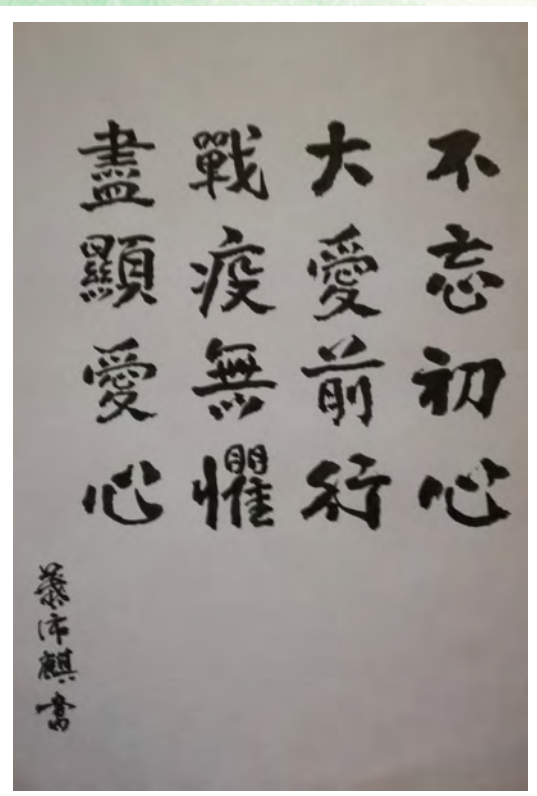 不忘初心
大愛前行
戰疫無懼
盡顯愛心
沛麒書